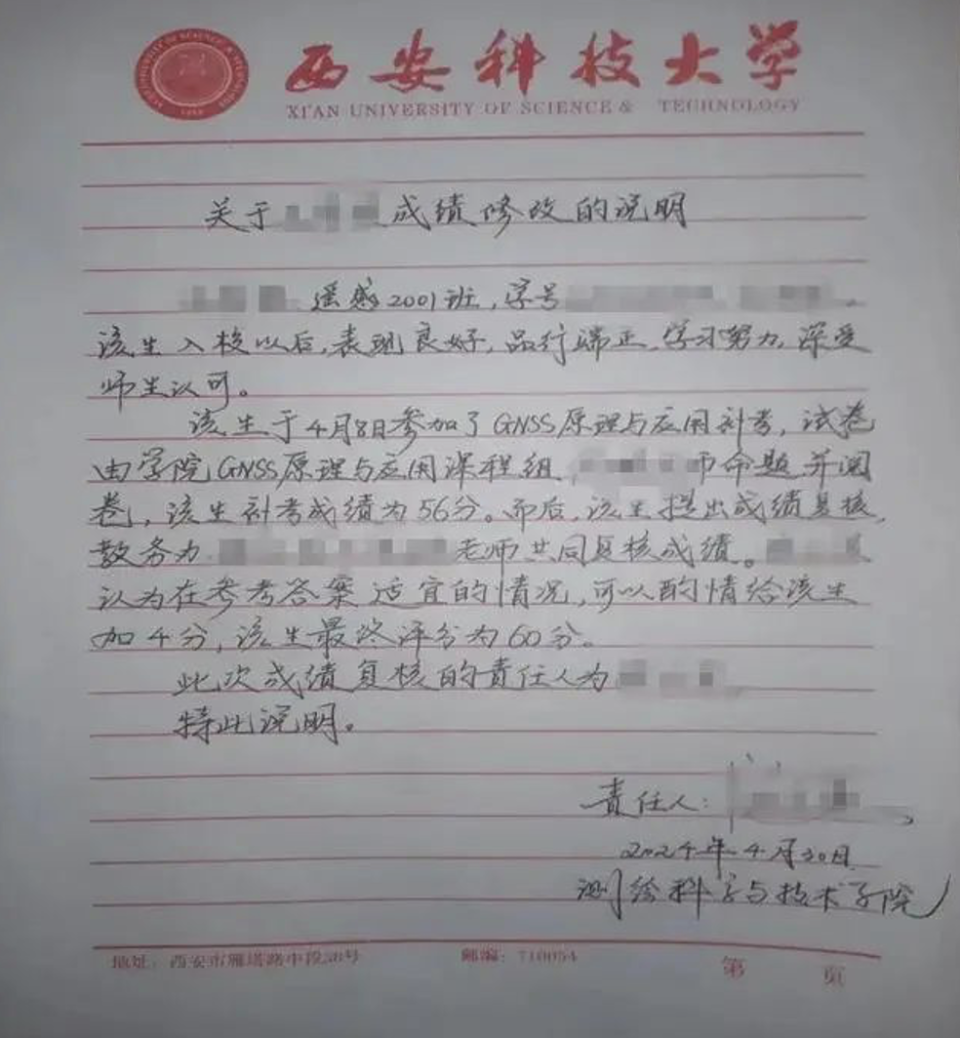 西安科技大学
XI'AN UNIVERSITY OF SCIENCE & TECHNOLOGY
关于 成绩修改的说明
遥感2001班,学号
该生入校以后,表现良好,品行端正、学习努力,深受
师生认可。
该生于4月8日参加了GNSS原理与应用补考,试卷
由学院GNSS原理与应用课程组, 师命题并阅
卷,该生补考成绩为56分。而后,该生提出成绩复核,
教务办 老师共同复核成绩。
认为在参考答案适宜的情况,可以酌情给该生
加4分,该生最终评分为60分。
此次成绩复核的责任人为
特此说明。
责任人:
2024年4月30日
测绘科学与技术学院
地址:西安市雁塔路中段58号 邮编:710054 第 页